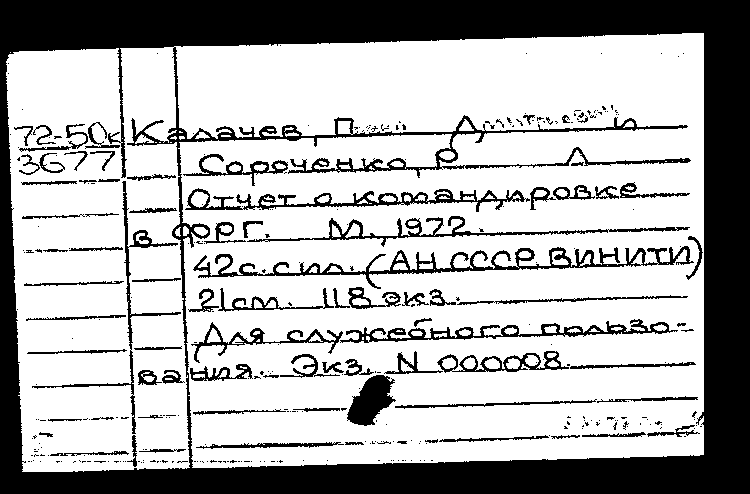 72-50к Калачев, Павел Дмитриевич и
3677 Сороченко, Р Л
Отчет о командировке
в ФРГ. М., 1972.
42с. с ил. (АН СССР. ВИНИТИ)
21см. 118 экз.
Для служебного пользо-
вания. Экз. N 000008.